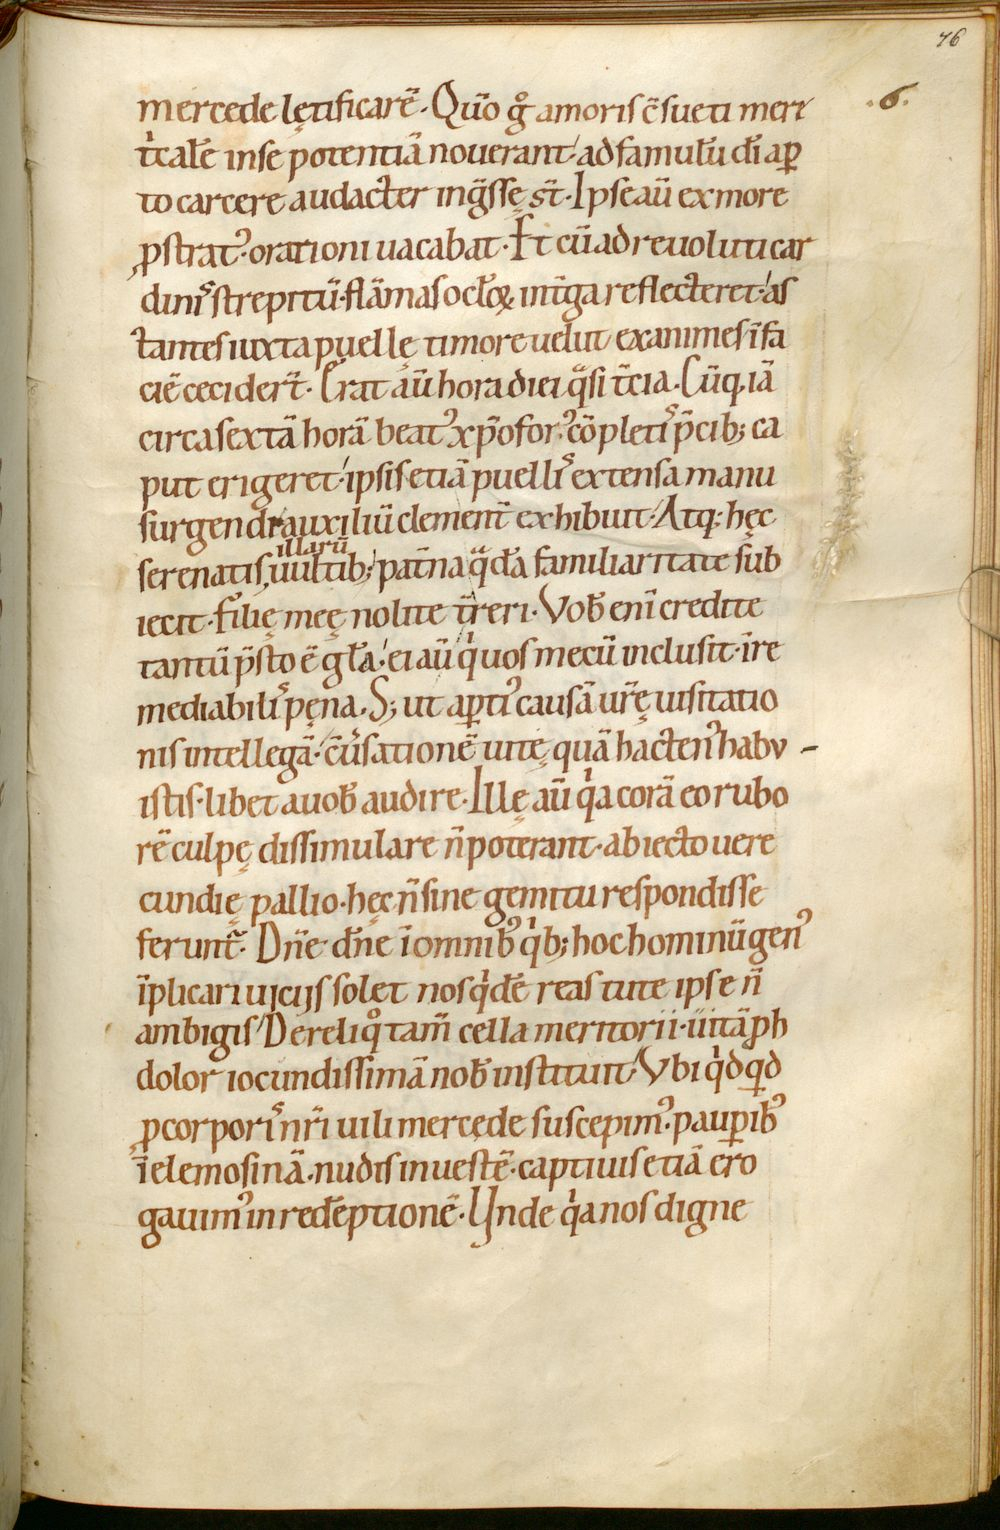 76
.6.
mercede lętificarē. Quō gͦ amoris c̄sueti meri
tͥcalē in se potentiā nouerant. ad famulū dī aꝑ
to carcere audacter ingͣssę st̄. Ipse aū ex more
ꝓstratꝰ. orationi uacabat. Et cū ad reuoluti car
dinis strepitū. flāmas oclꝝ. int̄ga reflecteret. as
tantes iuxta puellę timore uelut exanimes ī fa
ciē cecider̄t. Erat aū hora diei qͣsi t̄cia. Cūq; iā
circa sextā horā beatꝰ xp̄oforꝰ. cōpletis p̄cib; ca
put erigeret. ipsis etiā puellis extensa manu
surgendi auxiliū clement̄ exhibuit. Atq; hęc
illarū
serenatis uultib; pat̄na qͣdā familiaritate sub
iecit. Filię meę nolite t̄reri. Vob̄ enī credite
tantū p̄sto ē gl̄a. ei aū qͥ uos mecū inclusit. īre
mediabilis pęna. S; ut aꝑtiꝰ causā ur̄ę uisitatio
nis intellegā. c̄uͥsationē uitę quā hactenꝰ habu
istis. libet a uob̄ audire. Illę aū qͥa corā eo rubo
rē culpę dissimulare n̄ poterant. abiecto uere
cundię pallio. hęc n̄ sine gemitu respondisse
ferunt᷑. Dn̄e dn̄e ī omnibꝰ qͥb; hoc hominū genꝰ
īplicari uicijs solet nos qͥdē reas tute ipse n̄
ambigis. De reliqͦ tam̄ cella meritorii. uitā ꝓh
dolor iocundissimā nob̄ instituit. Vbi qͥdqͥd
ꝓ corporis nr̄i uili mercede suscepimꝰ. pauꝑibꝰ
ī elemosinā. nudis in uestē. captiuis etiā ero
gauimꝰ in redēptionē. Unde qͥa nos digne